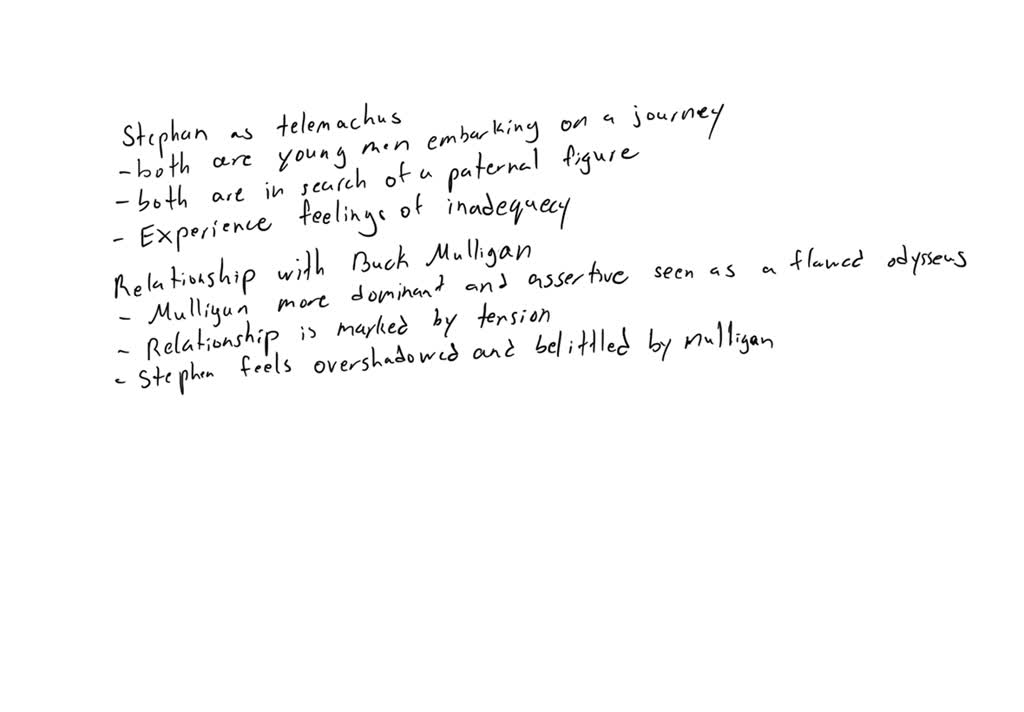 Stephan as telemachus
- both are young men embarking on a journey
- both are in search of a paternal figure
- Experience feelings of inadequecy
Relationship with Buck Mulligan
- Mulligan more dominant and assertive seen as a flawed odysseus
- Relationship is marked by tension
- Stephen feels overshadowed and belittled by Mulligan